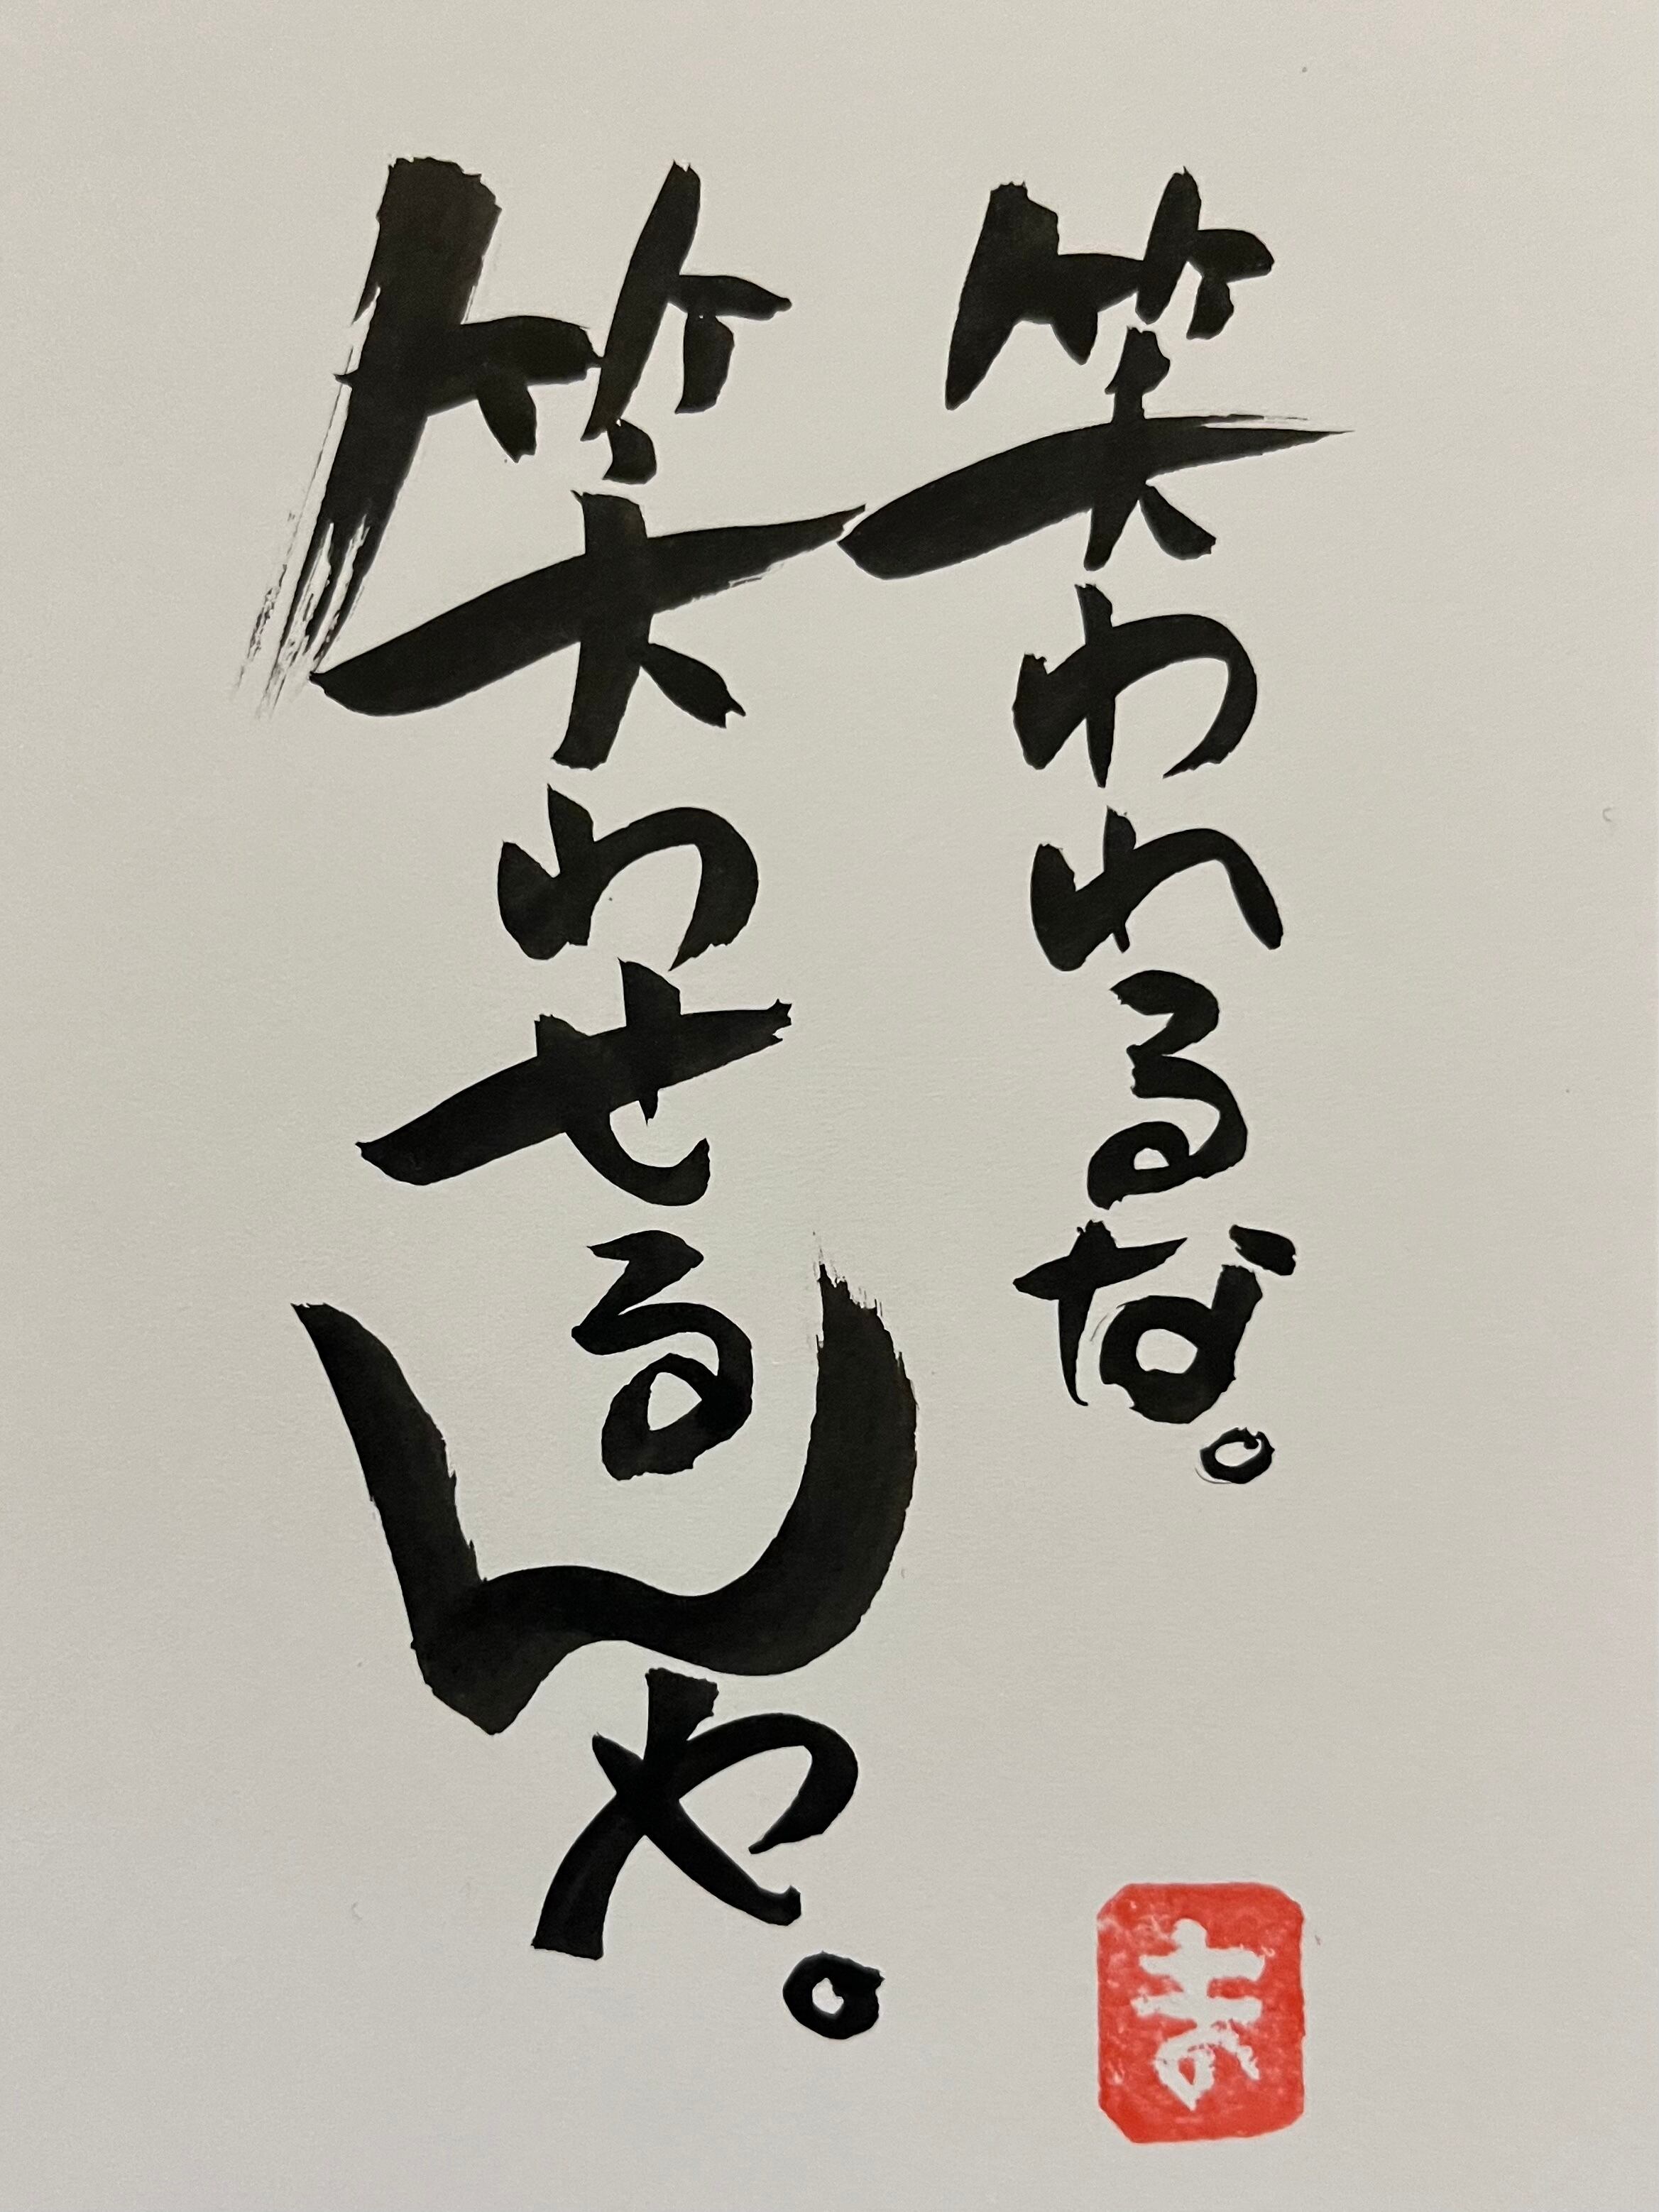 笑われるな。
笑わせるんや。
ま